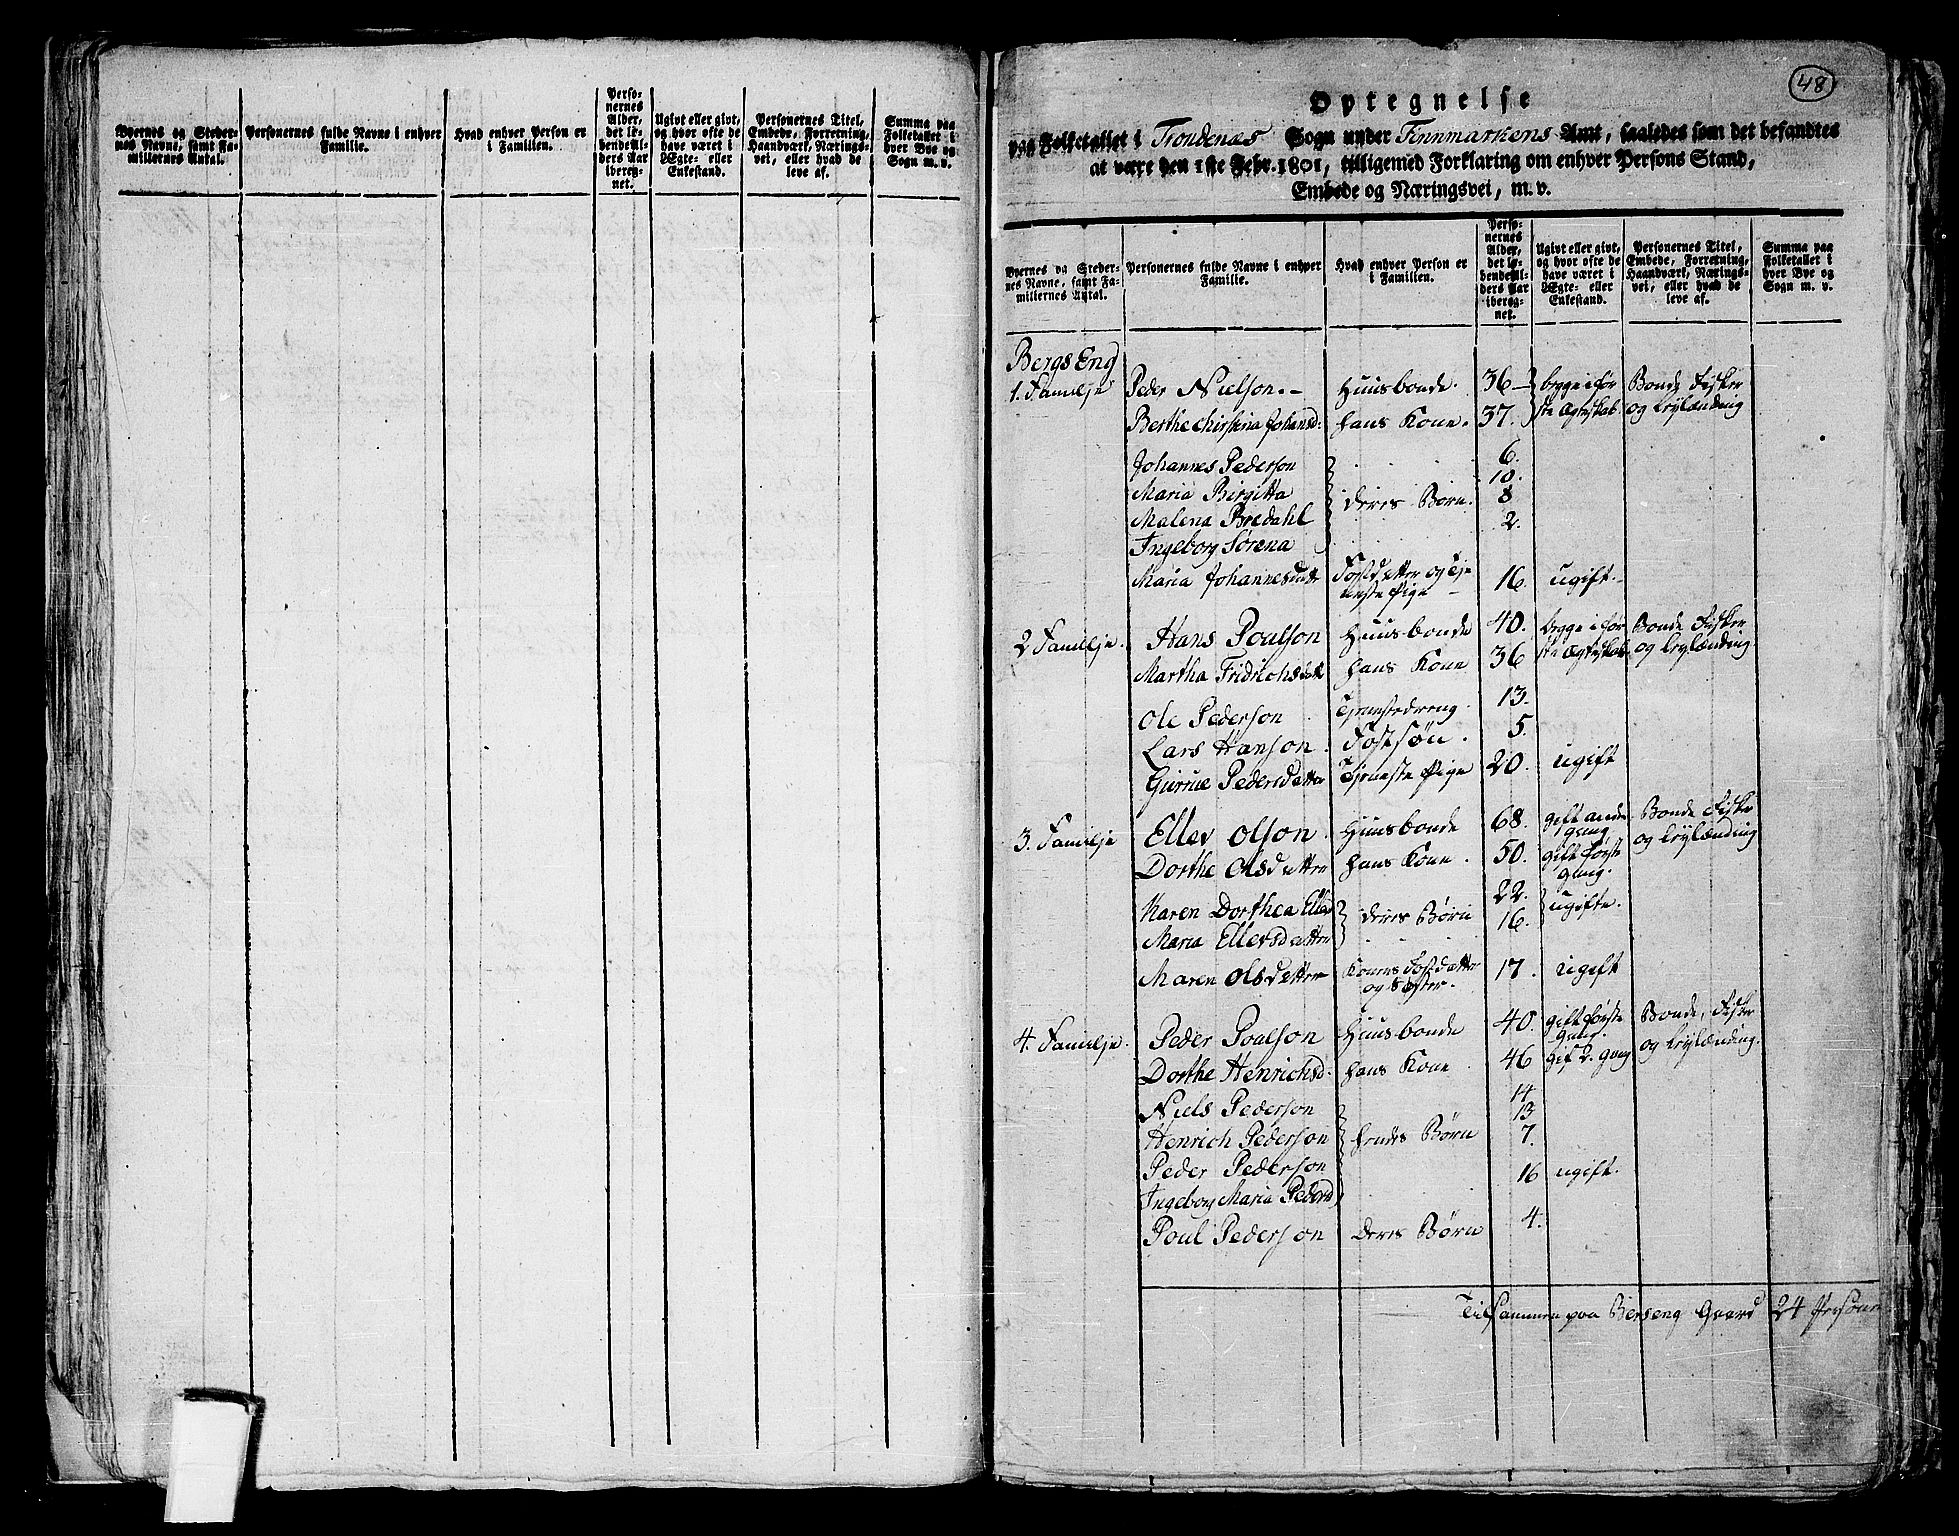 Byernes og Steder-
nes Navne, samt Fa-
milliernes Antal.
Personernes fulde Navne i enhver
Familie.
Hvad enhver Person er
i Familien.
Perso-
nernes
Alder,
det le-
bende Al-
ders Aar
ibereg-
net.
Ugivt eller givt,
og hvor ofte de
have været i
Ægte- eller
Enkestand.
Personernes Titel,
Embede, Forretning,
Haandværk, Nærings-
vei, eller hvad de
leve af.
Summa paa
Folketallet i
hver Bye og
Sogn m. v.
48
Optegnelse
paa Folketallet i Trondenæs Sogn under Finnmarkens Amt, saaledes som det befandtes
at være den 1ste Febr. 1801, tilligemed Forklaring om enhver Persons Stand,
Embede og Næringsvei, m. v.
Byernes og Steder-
nes Navne, samt Fa-
milliernes Antal.
Personernes fulde Navne i enhver
Familie.
Hvad enhver Person er
i Familien.
Perso-
nernes
Alder,
det lø-
bende Al-
ders Aar
ibereg-
net.
Ugivt eller givt,
og hvor ofte de
have været i
Ægte- eller
Enkestand.
Personernes Titel,
Embede, Forretning,
Haandværk, Nærings-
vei, eller hvad de
leve af.
Summa paa
Folketallet i
hver Bye og
Sogn m. v.
Bergs Eng
1. Familje Peder Nielson. Huusbonde. 36 begge i før Bonde Fisker
Berthe Chirstina Johansd: hans Kone. 37. ste Ægteskab og Leylænding
Johannes Pederson 6.
Maria Birgitta 10.
Malena Bredahl deres Børn. 8
Ingeborg Sørena 2.
Maria Johannesdatter Fostdatter og Tje 16. ugift.
neste Pige
2 Familje. Hans Poulson Huusbonde 40. begge i før Bonde Fisker
Martha Fridrichsdatt hans Kone 36 ste Ægteskab og Leylænding
Ole Pederson Tjenestedreng. 13.
Lars Hanson. Fostsøn. 5.
Gurrue Pedersdatter Tjeneste Pige 20. ugift
3. Familje Ellev Olson. Huusbonde 68. gift anden Bonde Fisker
gang og Leylænding
Dorthe Olsdatter hans Kone. 50. gift første
gang.
Karen Dorthea Elle 22.
deres Børn 16. ugifte.
Maria Ellevsdatter
Maren Olsdatter Konens Fostdatter 17. ugift
og Søster.
4. Familje. Peder Poulson Huusbonde 40. gift første Bonde, Fisker
gang. og Leylænding.
Dorthe Henrichsd. hans Kone 46 gift 2. gang
Niels Pederson 14
Henrich Pederson hendes Børn 13
Peder Pederson 7.
Ingeborg Maria Pedersd 16 ugift.
Poul Pederson deres Børn 4.
Tilsammen paa Berseng Gaard 24 Persone